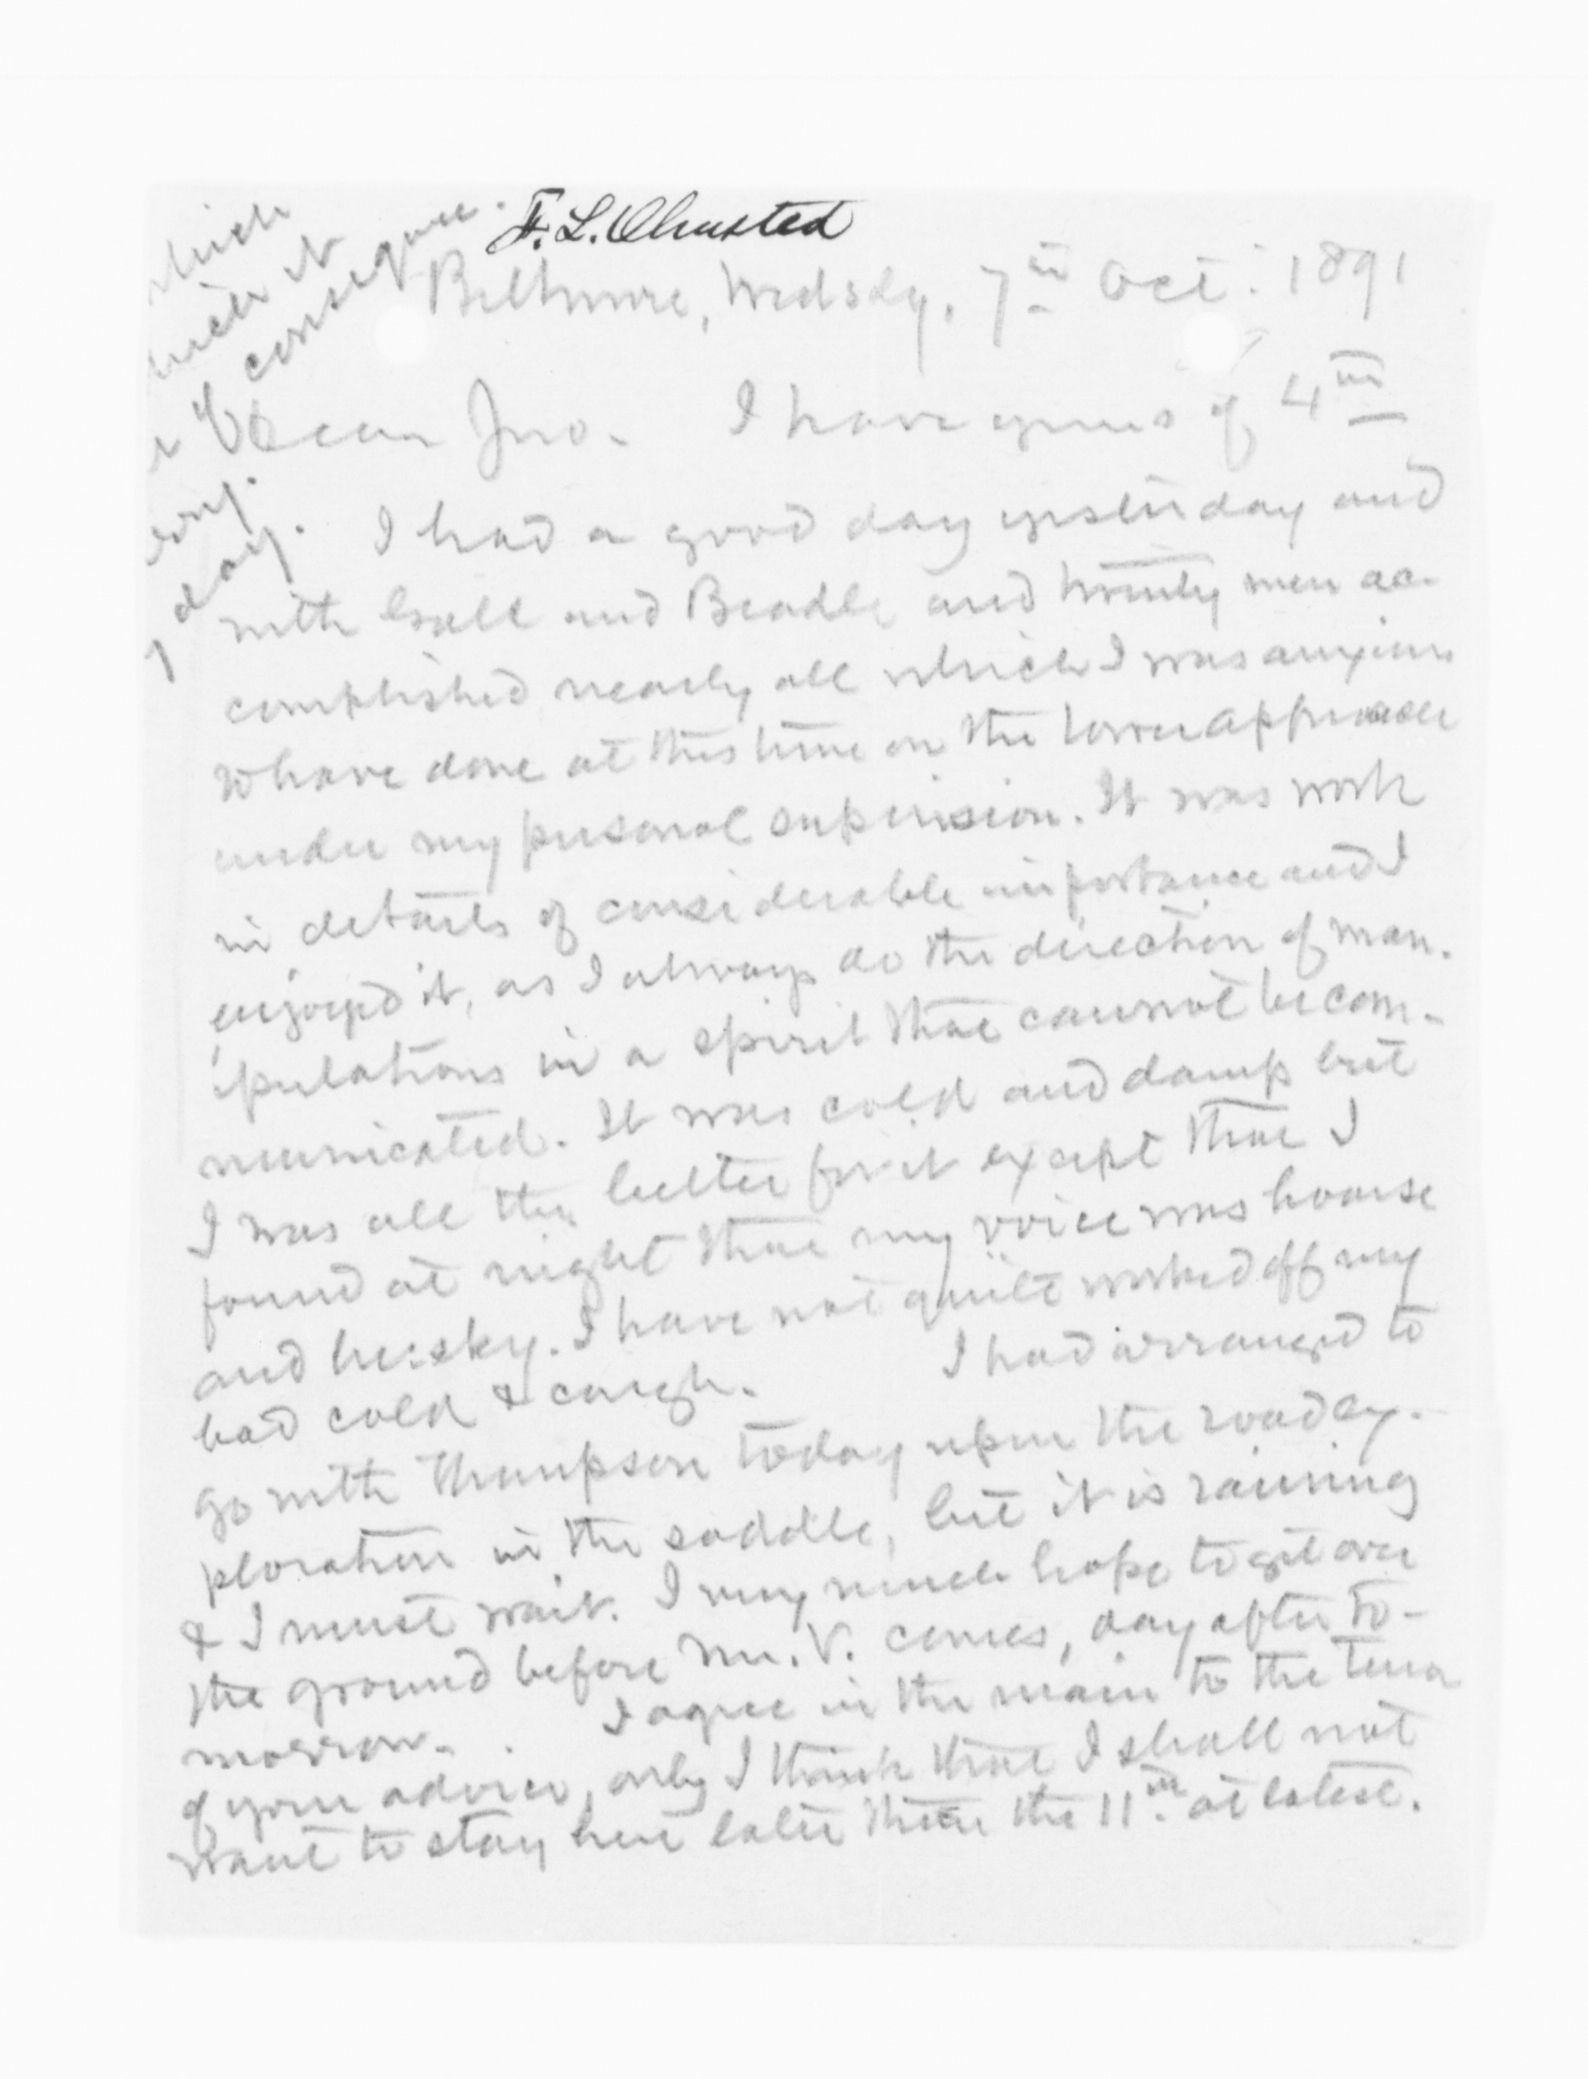 F. L. Olmsted
Biltmore, Wedsdy, 7th Oct: 1891
Dear Jno. I have yours of 4th
I had a good day yesterday and
with Gall and Beadle and twenty men ac-
complished nearly all which I was anxious
to have done at this time on the lower approach
under my personal supervision. It was work
in details of considerable importance and I
enjoyed it, as I always do the direction of man-
ipulations in a spirit that cannot be com-
municated. It was cold and damp but
I was all the better for it except that I
found at night that my voice was hoarse
and husky. I have not quite worked off my
bad cold & cough. I had arranged to
go with Thompson today upon the road ex-
ploration in the saddle, but it is raining
& I must wait. I very much hope to get over
the ground before Mr. V. comes, day after to-
morrow. I agree in the main to the tenor
of your advice, only I think that I shall not
want to stay here later than the 11th at latest.
which
which it
consequence.
day.